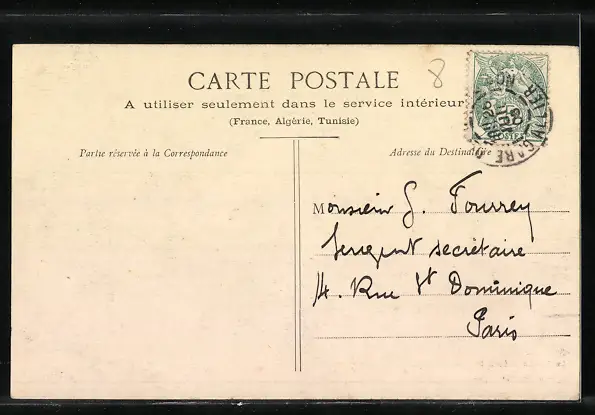 CARTE POSTALE
8
A utiliser seulement dans le service intérieur
(France, Algérie, Tunisie)
Partie réservée à la Correspondance
Adresse du Destinataire
GARE
Monsieur G. Fourrey
Sergent secrétaire
14. Rue St Dominique
Paris